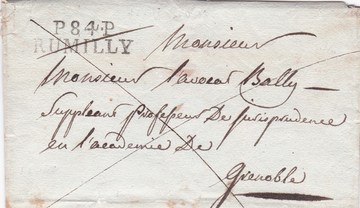 P.84.P
RUMILLY
Monsieur
Monsieur l'avocat Bally —
suppleant professeur De jurisprudence
en l'academie De
Grenoble